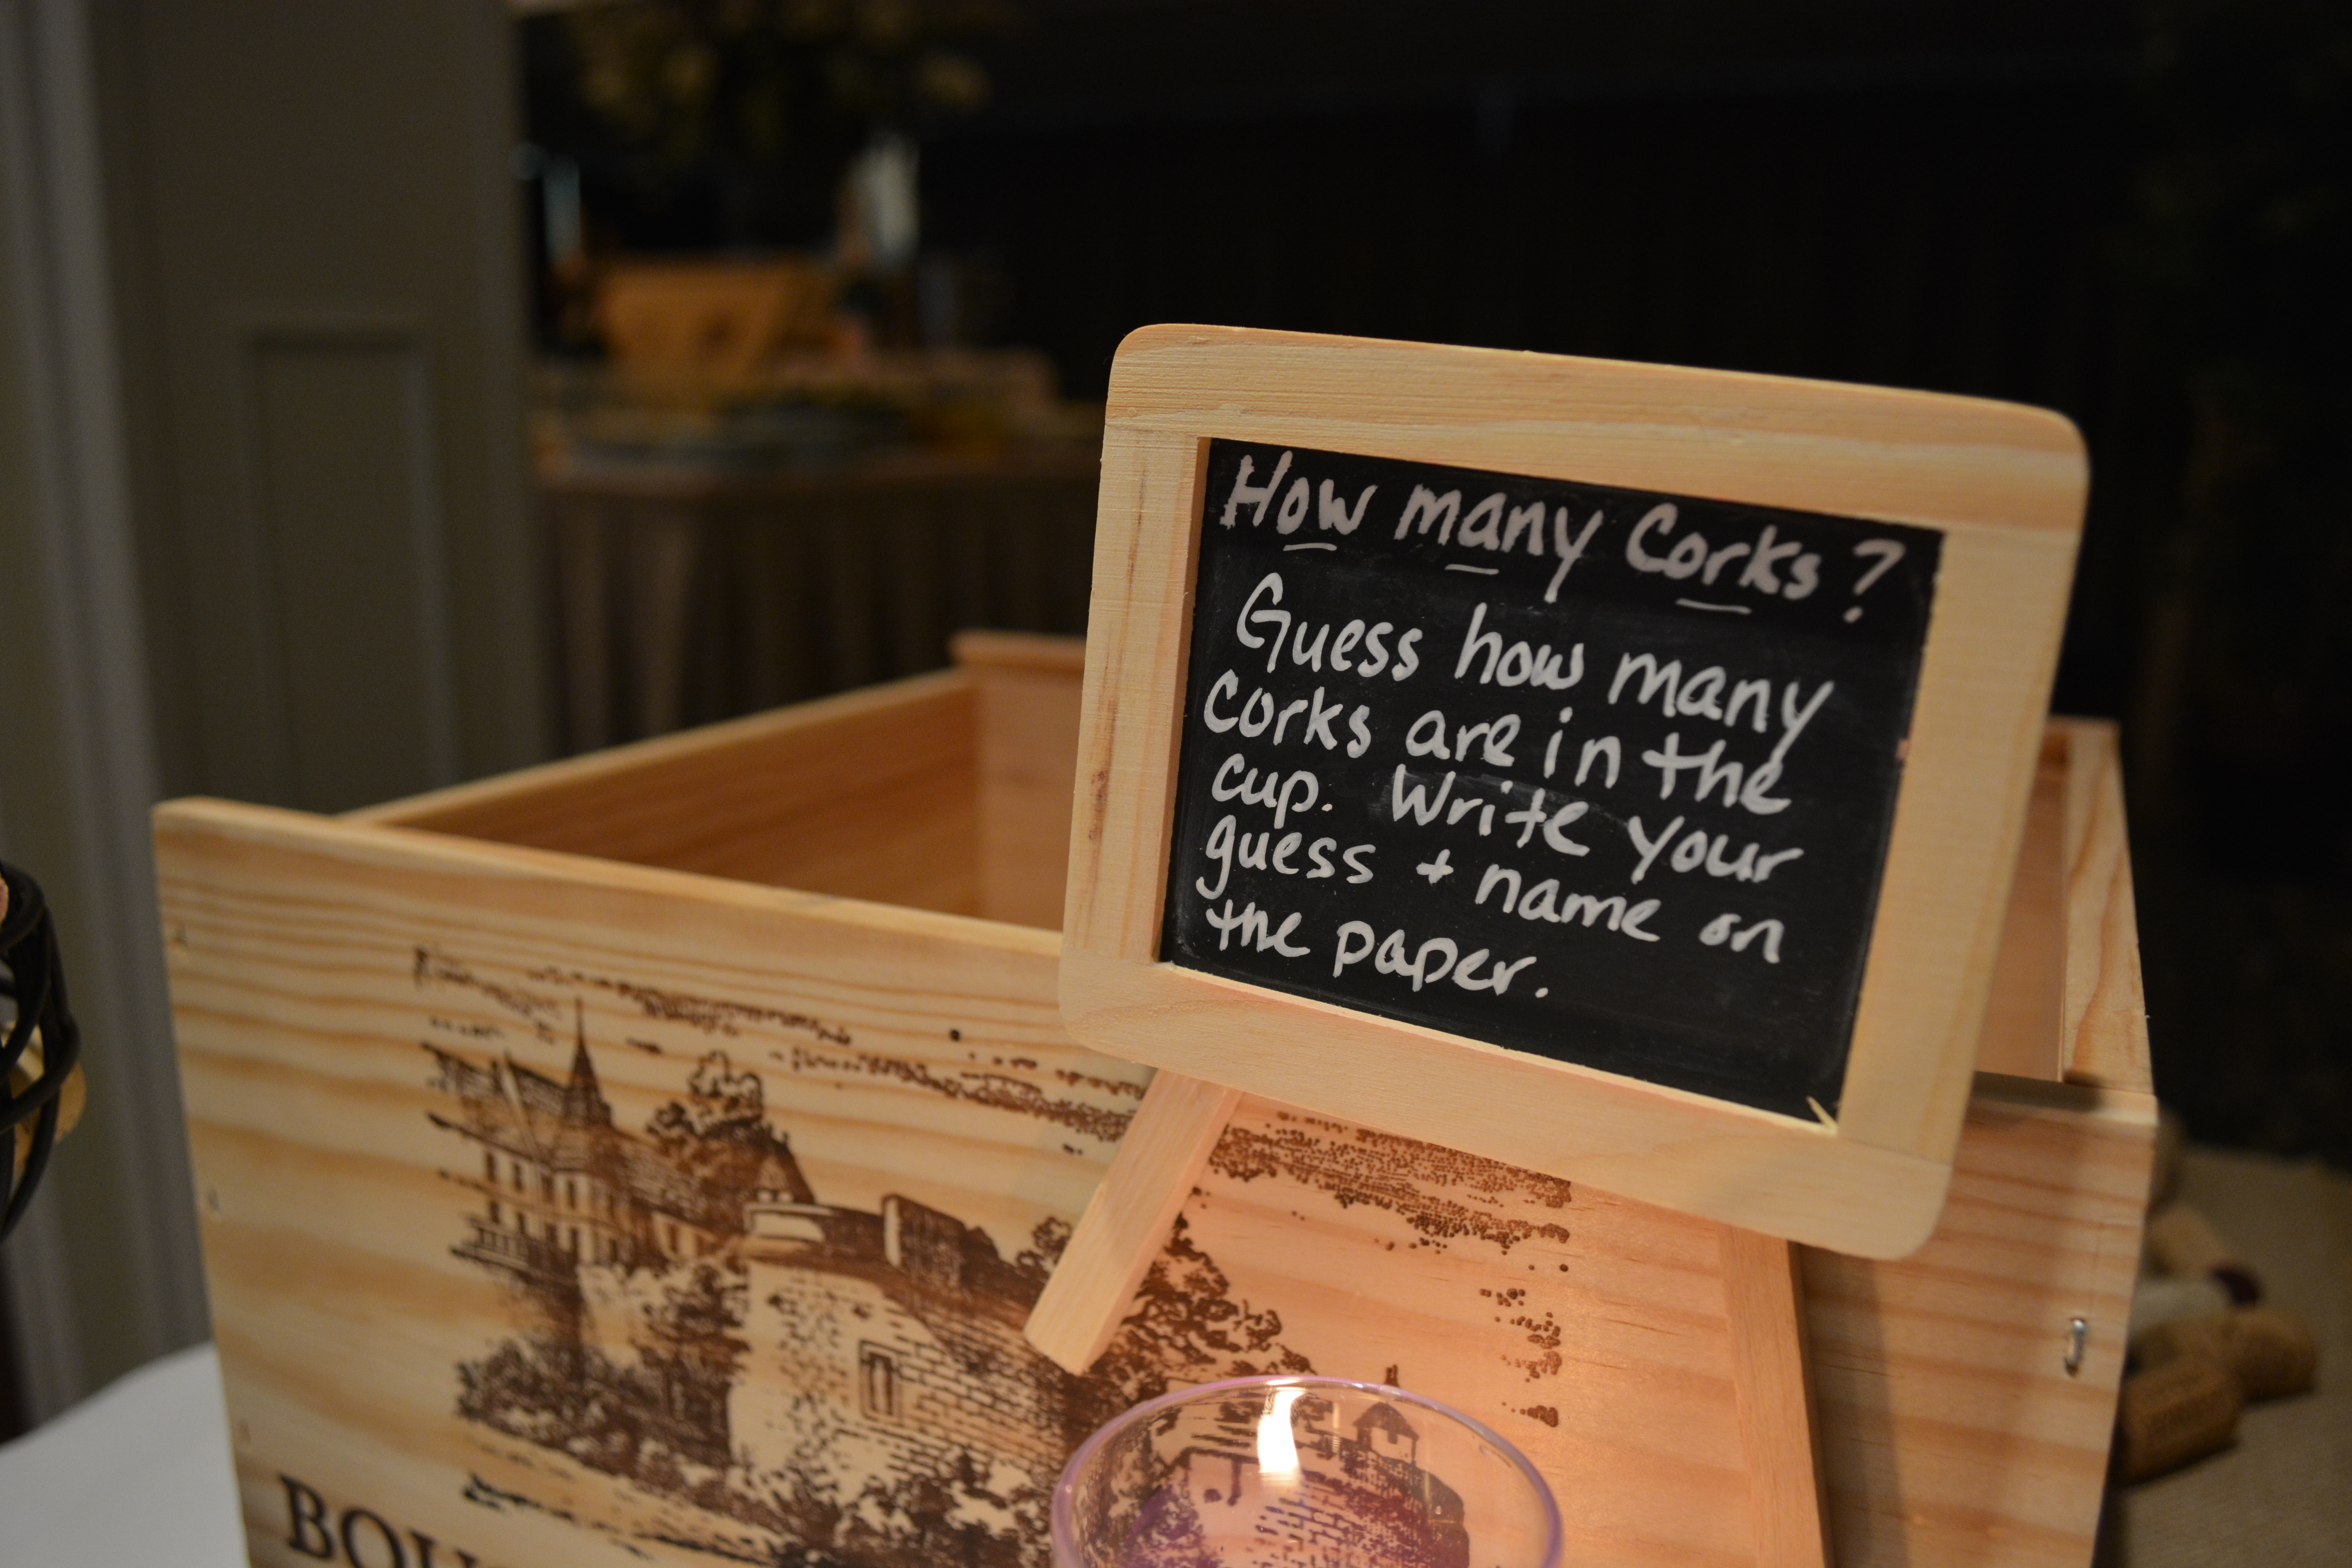 How many Corks?
Guess how many
Corks are in the
cup. Write your
guess + name on
the paper.